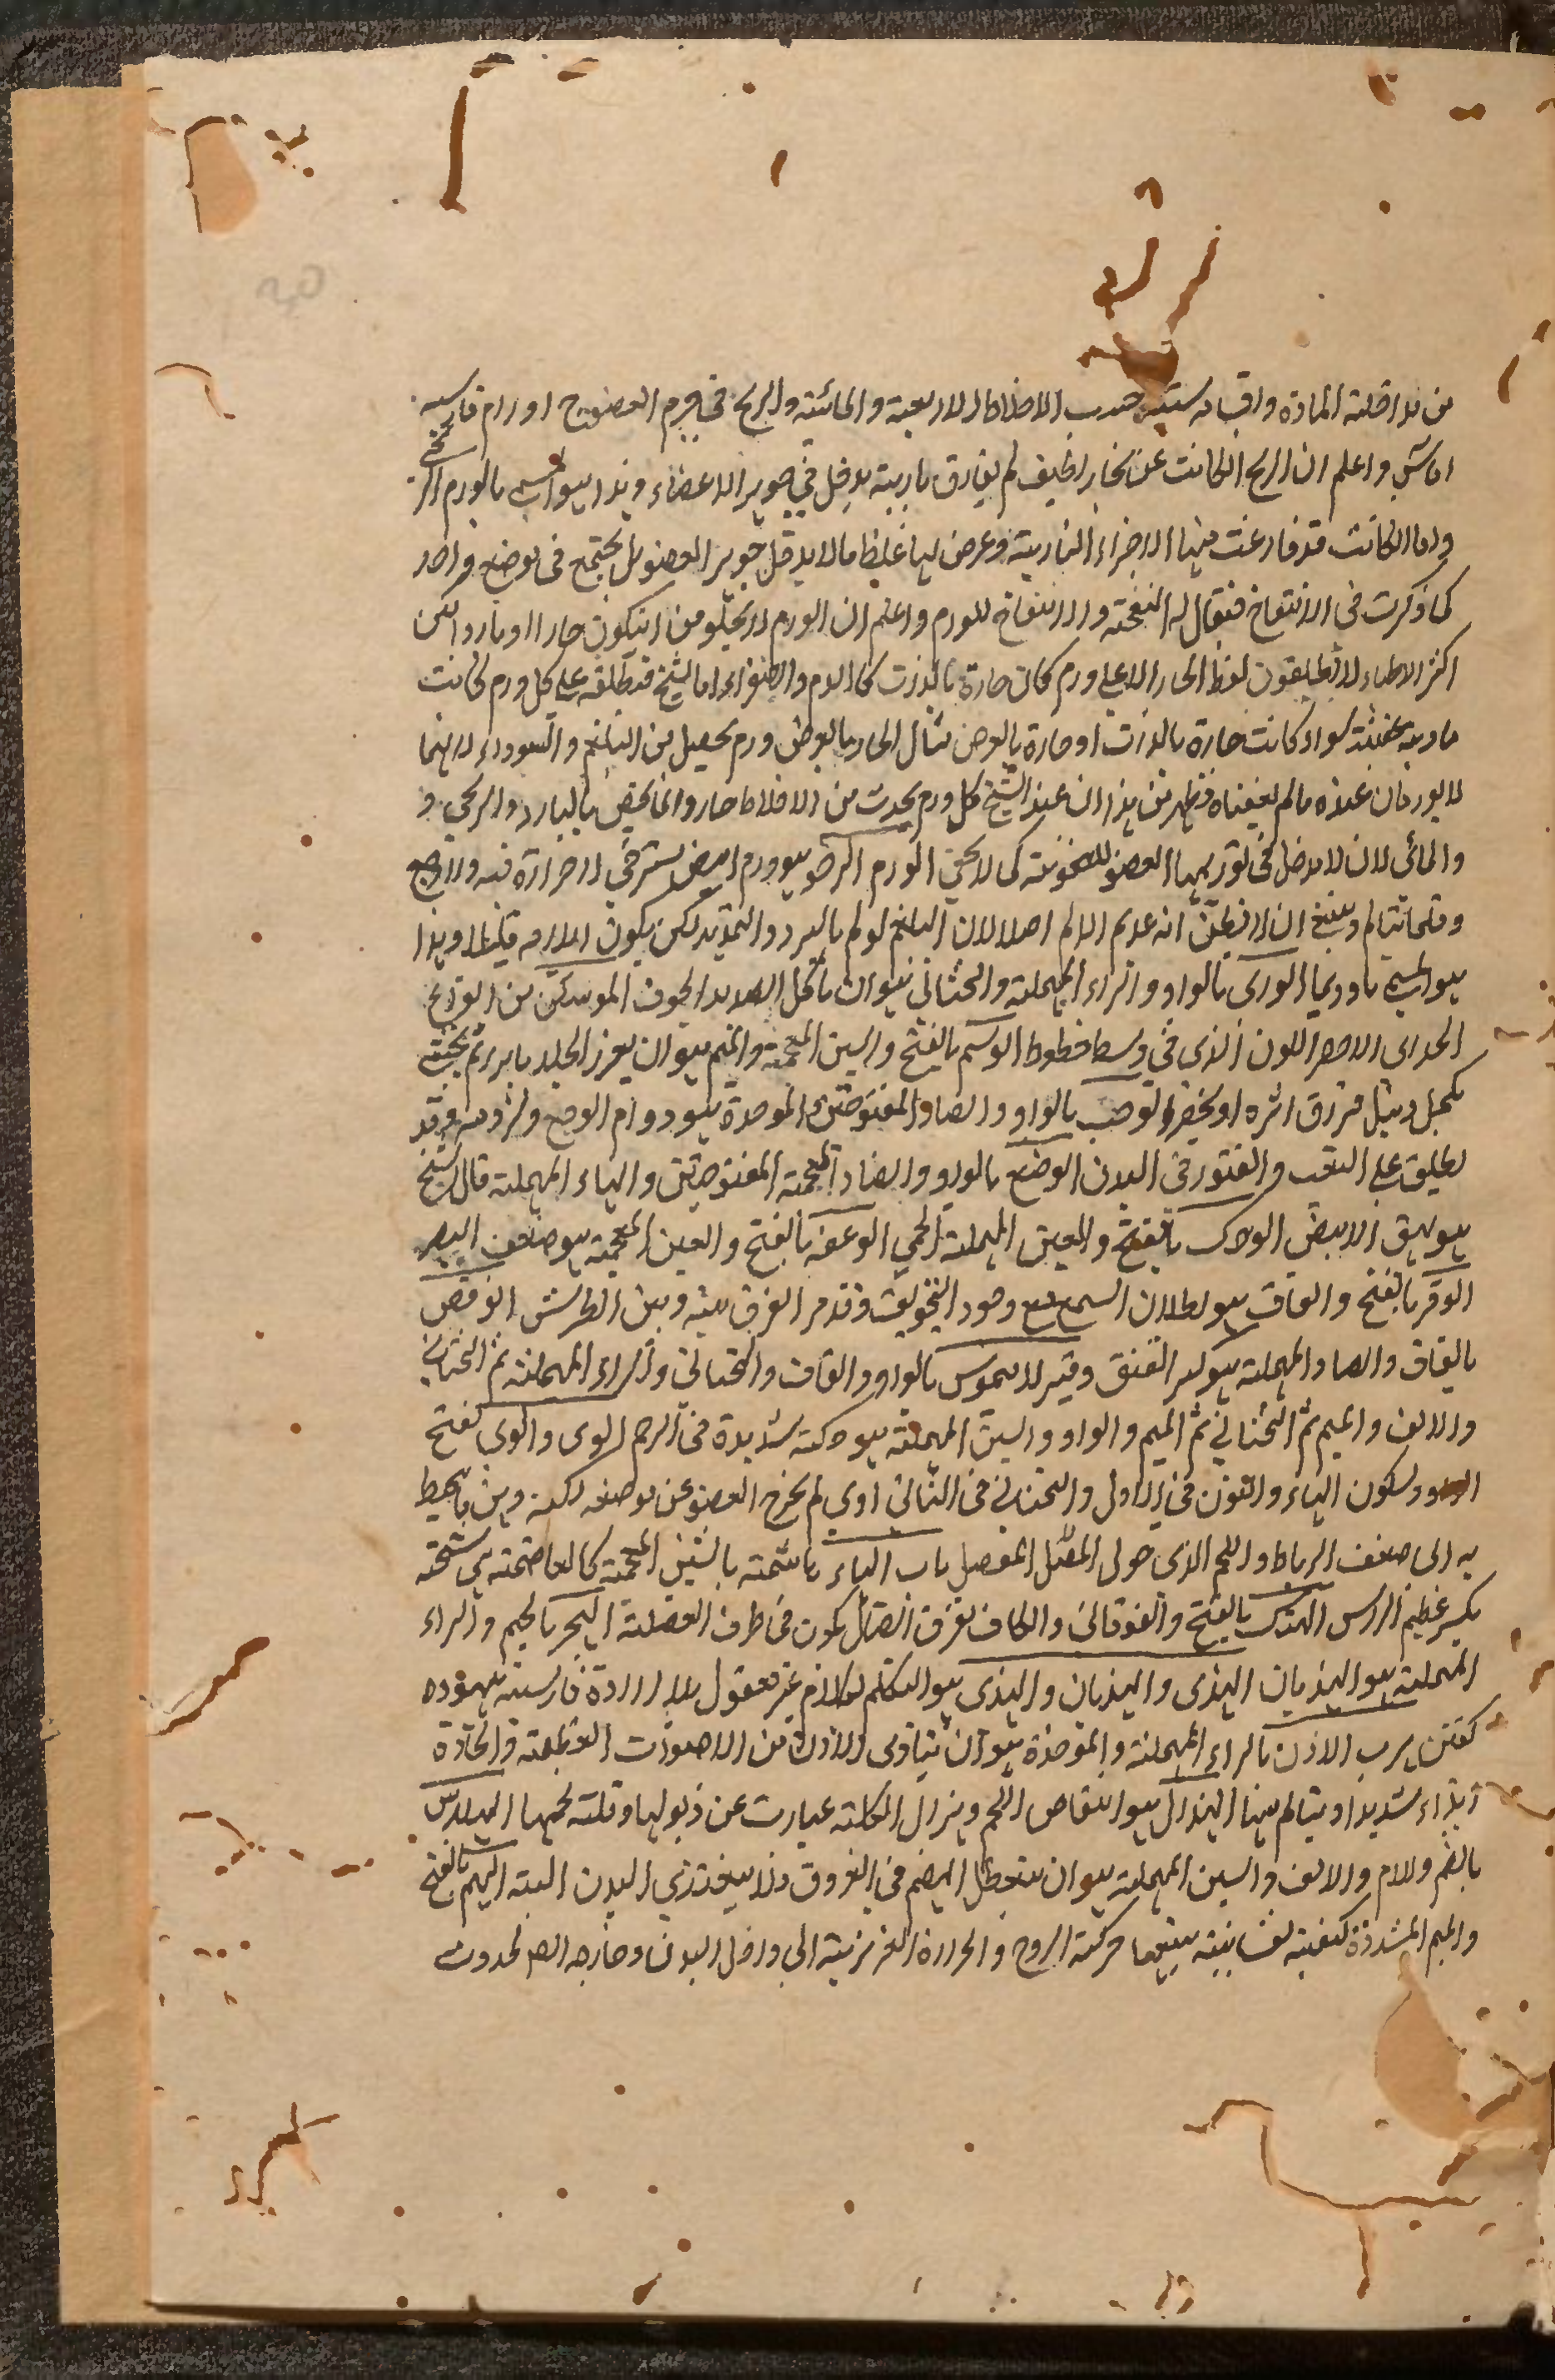 من مداخلة المادة واقسامه ستة حسب الاخلاط الاربعة والمائية والريح في جرم العضو ج اورام فارسيه
اماس واعلم ان الريح انكانت عن بخار لطيف لم يفارق ناريته يدخل في جوهر الاعضاء وهذا هو المسمى بالورم الريحي
واما انكانت قد فارغت منها الاجزاء النارية وعرض لها غلظ ما لا يدخل جوهر العضو بل يجتمع في موضع واحد
كما ذكرت في الانتفاخ فيقال له النفخة والانتفاخ للورم واعلم ان الورم لا يخلو من ان يكون حارا او باردا لكن
اكثر الاطباء لا يطلقون لفظ الحار الا على ورم كان حارة بالذات كالدم والصفراء اما الشيخ فيطلقه على كل ورم كانت
مادته عفنة سواء كانت حارة بالذات او حارة بالعرض مثال الحار بالعرض ورم يحصل من البلغم والسوداء لانهما
لا يورمان عنده ما لم يعفناه فظهر من هذا ان عند الشيخ كل ورم يحدث من الاخلاط حار وانما يختص بالبارد والريحي و
والمائي لان لا مدخل في توريمها العضو للعفونة كما لا يخفى الورم الرخو هو ورم ابيض مسترخي لا حرارة فيه ولا وجع
وقلما يتالم وينبغي ان لا يظن انه عديم الالم اصلا لان البلغم يولم بالبرد والتمديد لكن يكون ايلامه قليلا وهذا
هو المسمى باوديما الورى بالواو والراء المهملة والتحتاني هو ان يأكل الصديد الجوف الموسكن من القروح
الجداى الاحمر اللون الذى في وسطه خطوط الوشم بالفتح والشين المعجمة والميم هو ان يغرز الجلد بابر ثم يحشى
بكحل ونيل فيزرق اثره او يخضر الوصب بالواو والصاد المفتوحتين والموحدة هو دوام الوجع ولزومه وقد
يطلق على التعب والفتور في البدن الوضح بالواو والضاد المعجمة المفتوحتين والحاء المهملة قال الشيخ
هو بهق الابيض الوعك بالفتح والعين المهملة الحمى الوغف بالفتح والغين المعجمة هو ضعف البصر
الوقر بالفتح والقاف هو بطلان السمع مع وجود التجويف وقد مر الفرق بينه وبين الطرش الوقص
بالقاف والصاد المهملة هو كسر العنق وقير لا سموس بالواو والقاف والتحتاني والراء المهملة ثم التحتاني
والالف والميم ثم التحتاني ثم الميم والواو والسين المهملة هو حكة شديدة في الرحم الوهى والوى بفتح
الواو وسكون الهاء والنون في الاول والتحتاني في الثاني اوى لم يخرج العضو عن موضعه لكنه وهن ما يحيط
به الى ضعف الرباط واللحم الذى حول المفصل باب الهاء هاشمة بالشين المعجمة كالفاصمة هي شجة
يكسر عظم الراس الهتك بالفتح والفوقاني والكاف تفرق اتصال يكون في طرف العضلة الهجر بالجيم والراء
المهملة هو الهذيان الهذى والهذيان والهذى هو التكلم بكلام غير معقول بلا ارادة فارسيته بيهوده
گفتن هرب الاذن بالراء المهملة والموحدة هو ان يتاذى الاذن من الاصوات العظيمة والحادة
ايذاء شديدا ويتالم منها الهزال هو انتقاص اللحم وهزال الكلية عبارت عن ذبولها وقلة شحمها الهلاس
بالضم ولام والالف والسين المهملة هو ان يتعطل الهضم في العروق فلا يغتذي البدن البتة الهم بالفتح
والميم المشددة كيفية نفسانية يتبعها حركة الروح والحرارة الغريزية الى داخل البدن وخارجه لحدوث